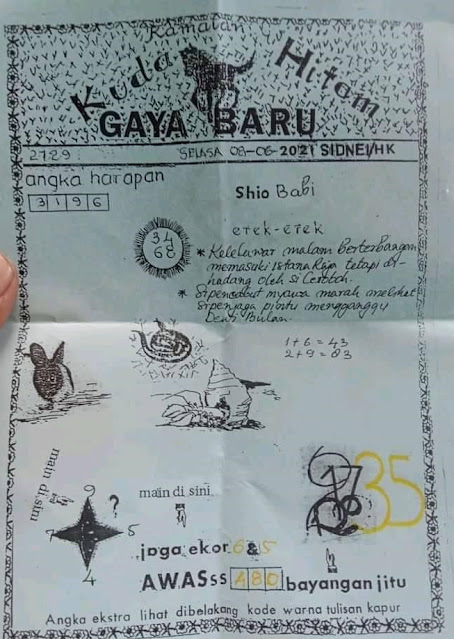 Ramalan
Kuda Hitam
GAYA BARU
2729 SELASA 08-06-2021 SIDNEI/HK
angka harapan
3196
Shio Babi
34
68
erek-erek
* Kelelawar malam Berterbangan
memasuki Istana Raja tetapi di
hadang oleh si
* Sipencabut nyawa marah melihat
sipenjaga pintu mengganggu
Dewi Bulan
1+6=43
2+9=83
main di sini
9
?
7 5
4
main di sini
35
jaga ekor 6&5
AWASss 480 bayangan jitu
Angka ekstra lihat dibelakang kode warna tulisan kapur